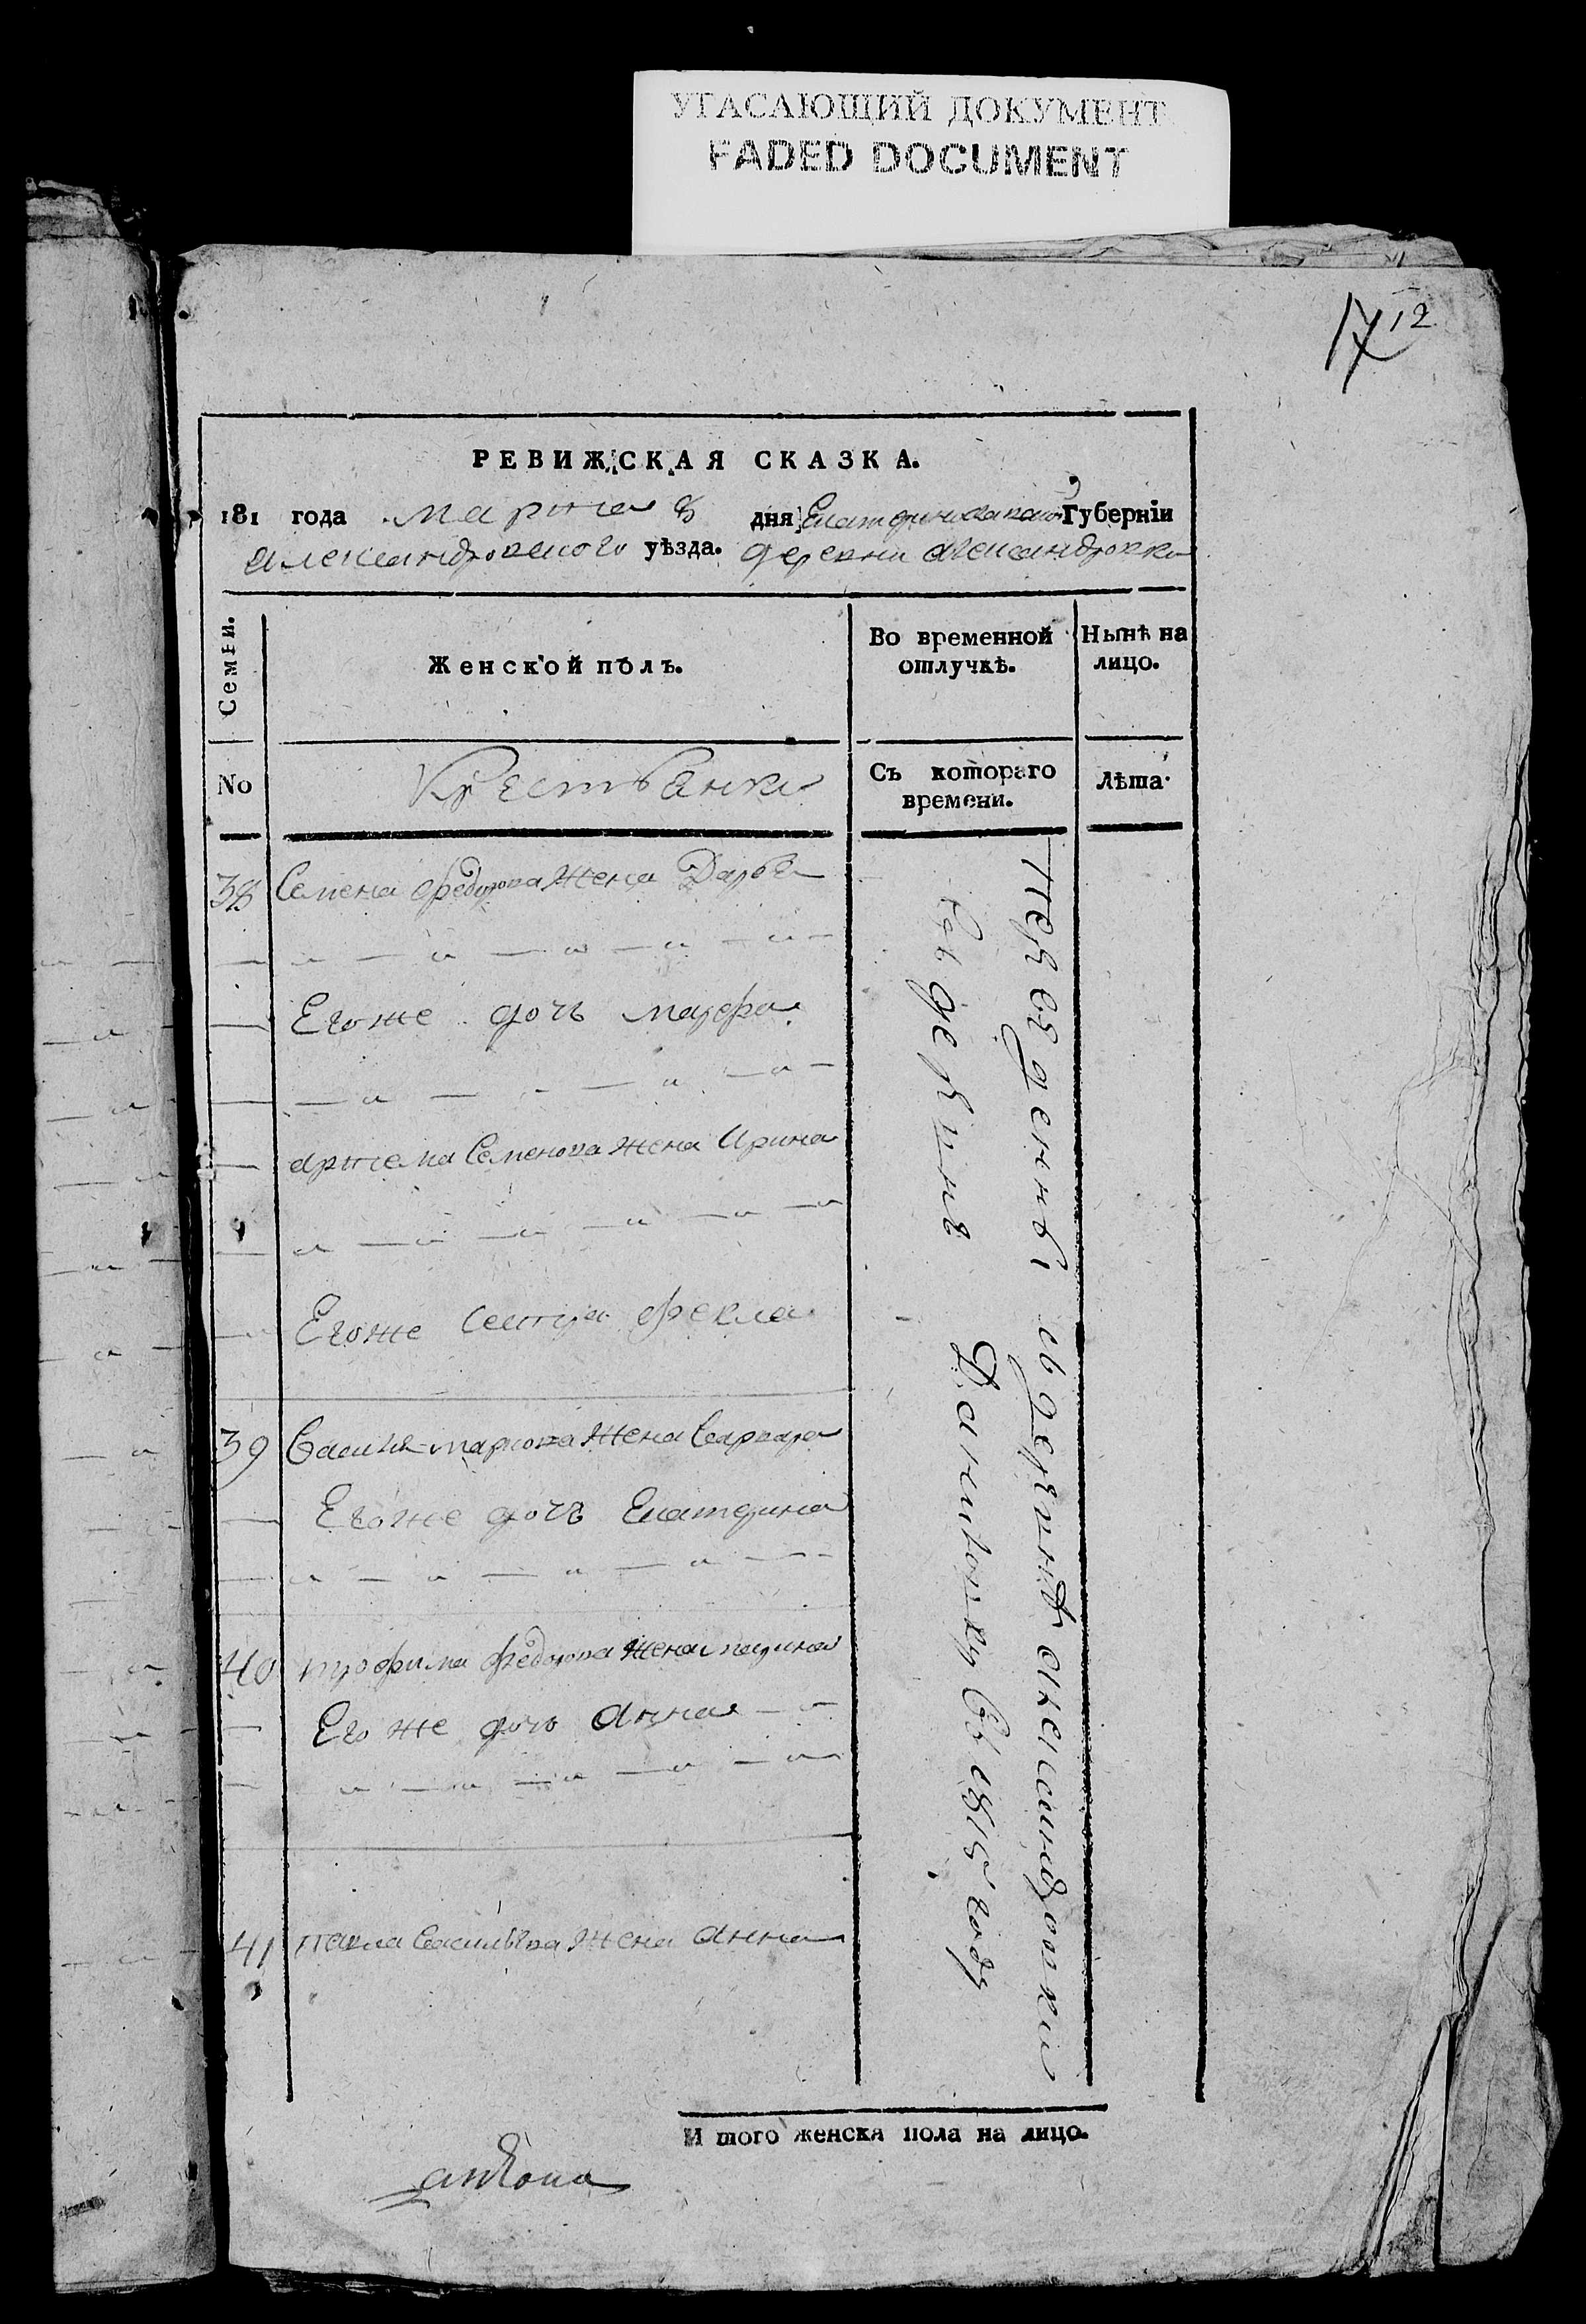 УГАСАЮЩИЙ ДОКУМЕНТ
FADED DOCUMENT
17 12
РЕВИЖСКАЯ СКАЗКА.
181 года марта 8 дня Екатеринославской Губерніи
Александровскаго уѣзда. деревни Александровки
Семьи.
Женской полъ.
Во временной отлучкѣ.
Нынѣ на лицо.
No
Крестьянки
Съ котораго времени.
Лѣта.
38 Семена Федорова жена Дарья
Егоже дочь марфа
артема Семенова жена Ирина
Егоже сестра фекла
39 Василия маркова жена варвара
Егоже дочь Екатерина
40 трофима Федорова жена марина
Его же дочь Анна
41 павла васильева жена Анна
переведенны съ деревни Александровки
въ деревню Даниловку въ 1815 году
И того женска пола на лицо.